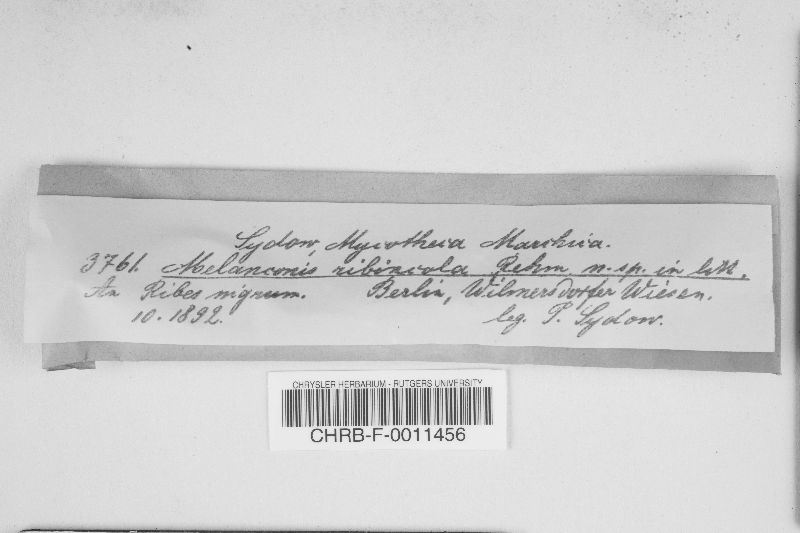 Sydow, Mycotheca Marchica.
3761. Melanconis ribincola Rehm n. sp. in litt.
An Ribes nigrum. Berlin, Wilmersdorfer Wiesen.
10. 1892. leg. P. Sydow.
CHRYSLER HERBARIUM - RUTGERS UNIVERSITY
CHRB-F-0011456